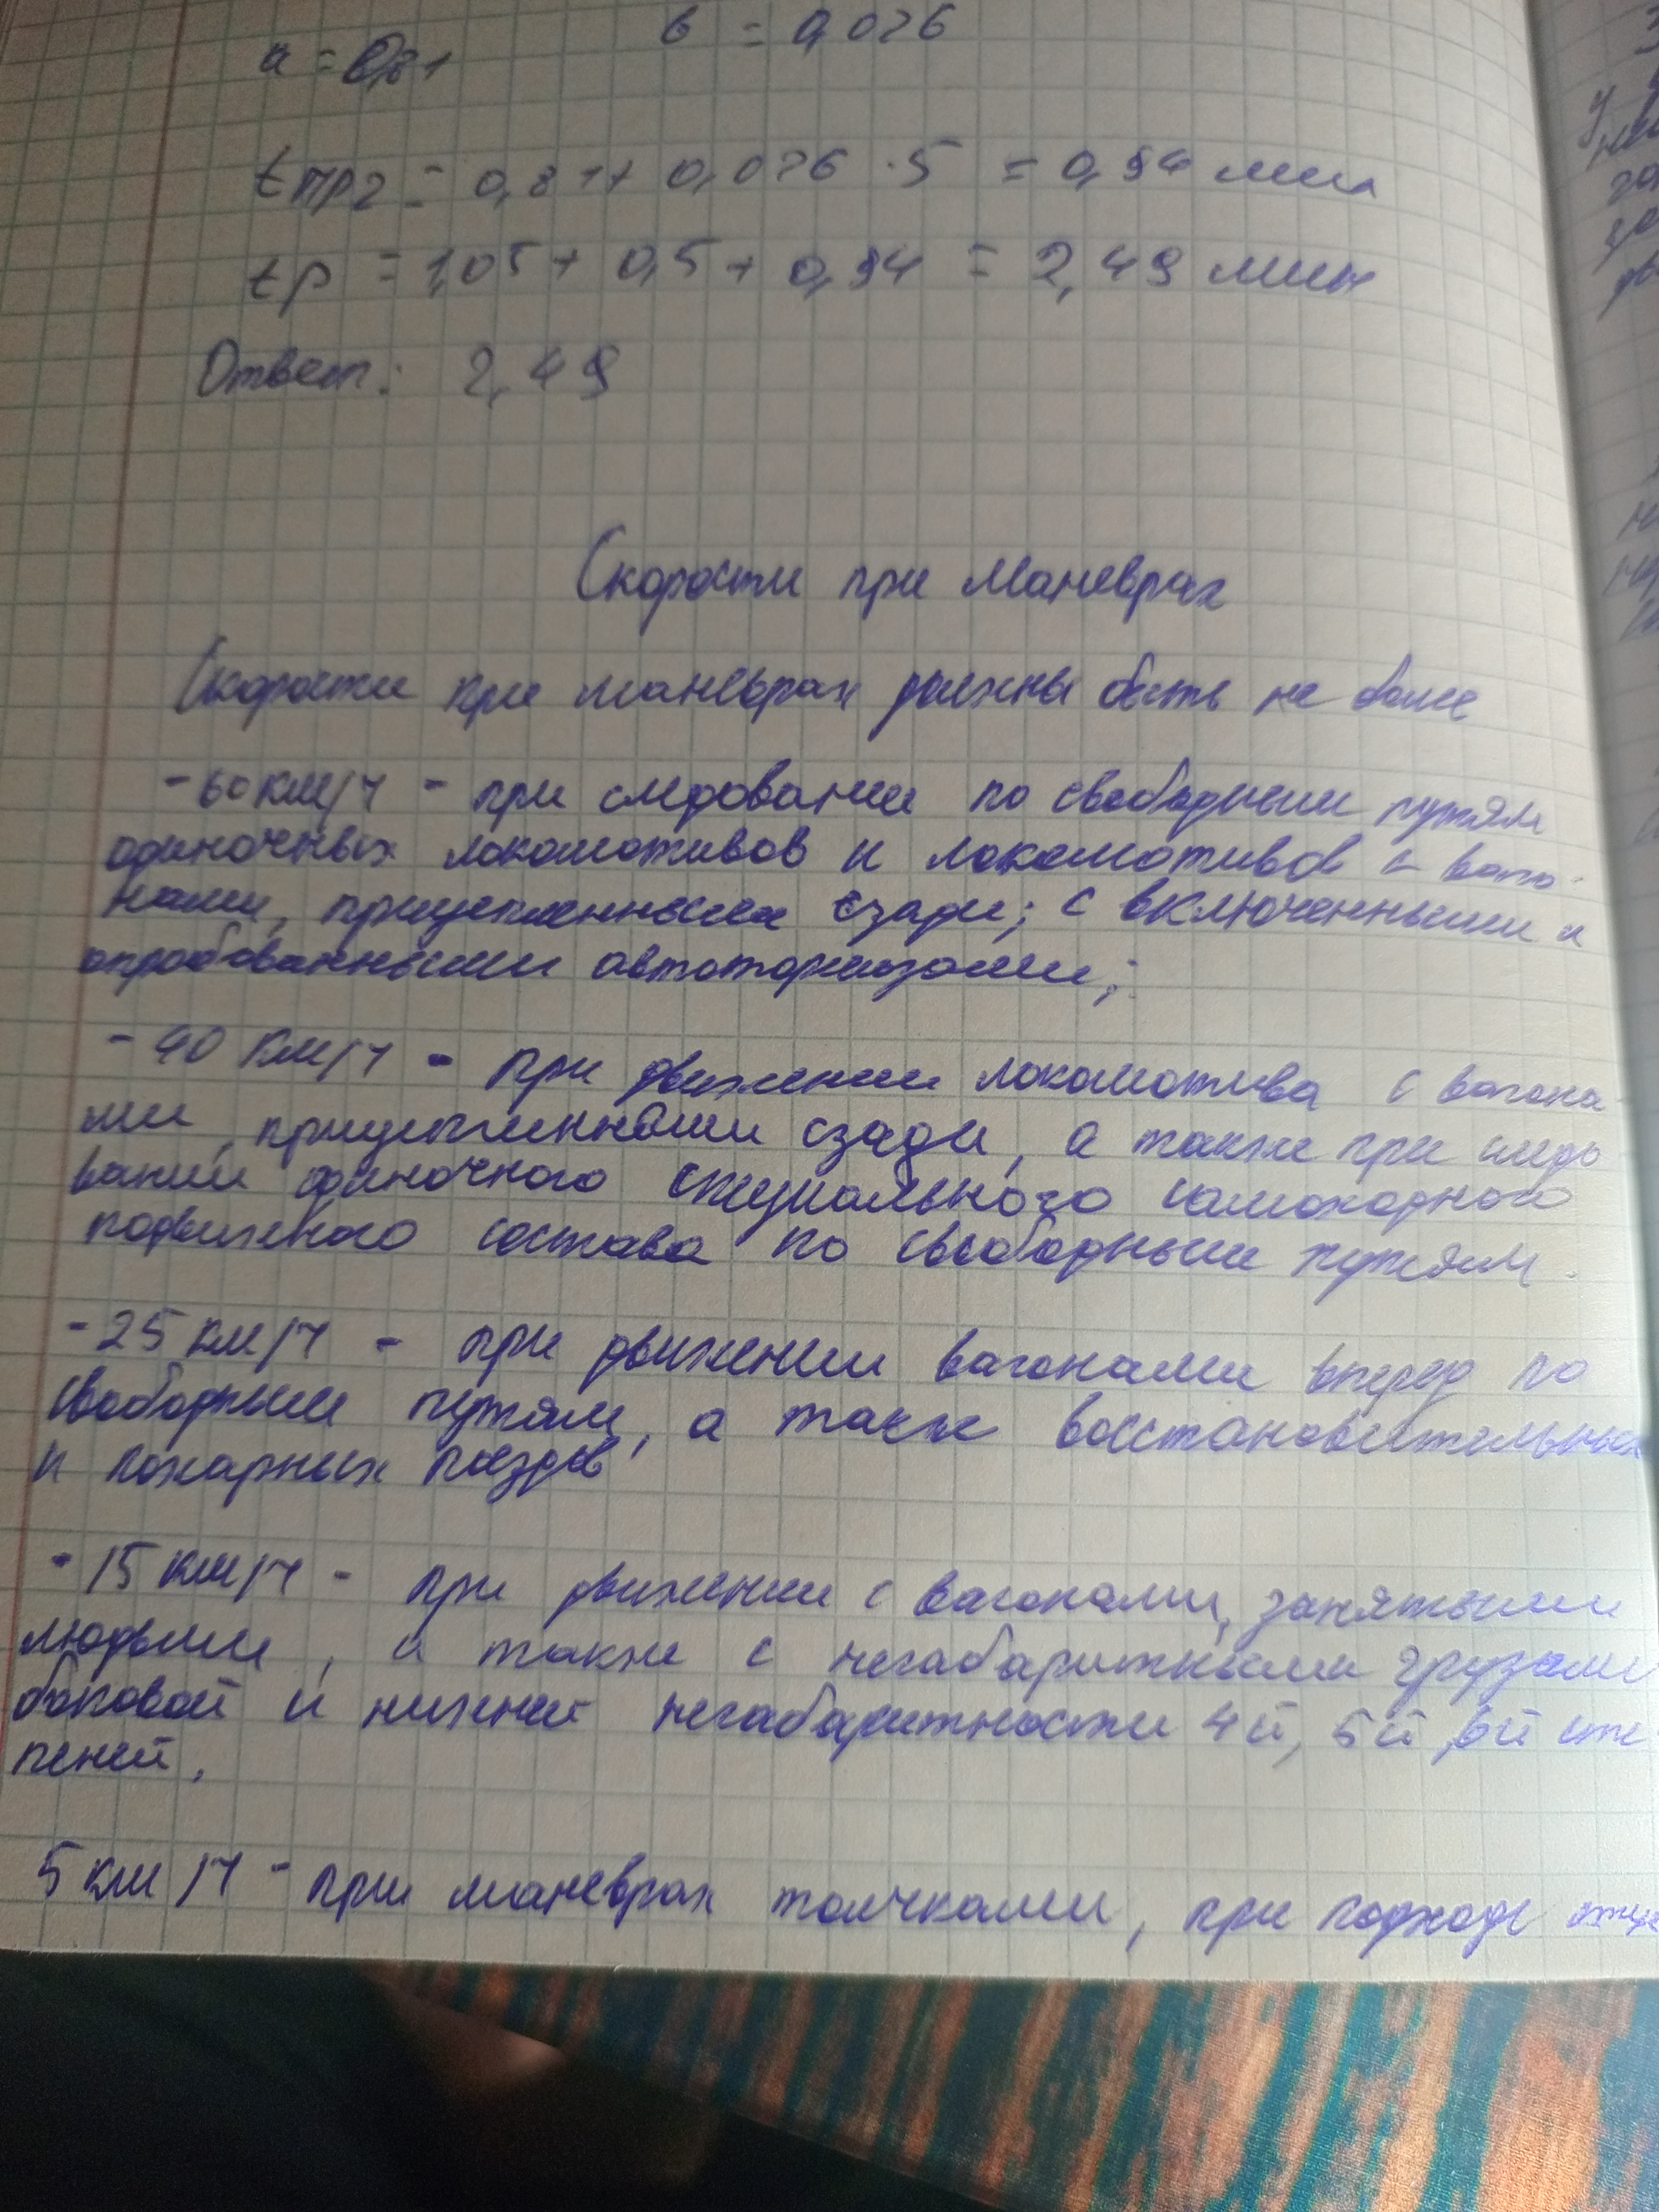 a = 0,81 в = 0,026
tтр2 = 0,81 + 0,026 · 5 = 0,94 мин
tр = 1,05 + 0,5 + 0,94 = 2,49 мин
Ответ: 2,49
Скорости при маневрах
Скорости при маневрах должны быть не более
- 60 км/ч - при следовании по свободным путям
одиночных локомотивов и локомотивов с ваго-
нами, прицепленными сзади; с включенными и
опробованными автотормозами;
- 40 км/ч - при движении локомотива с вагона-
ми, прицепленными сзади, а также при следо
вании одиночного специального самоходного
подвижного состава по свободным путям.
- 25 км/ч - при движении вагонами вперед по
свободным путям, а также восстановительных
и пожарных поездов
- 15 км/ч - при движении с вагонами, занятыми
людьми, а также с негабаритными грузами
боковой и нижней негабаритности 4й, 5й, 6й сте-
пеней.
5 км/ч - при маневрах толчками, при подходе